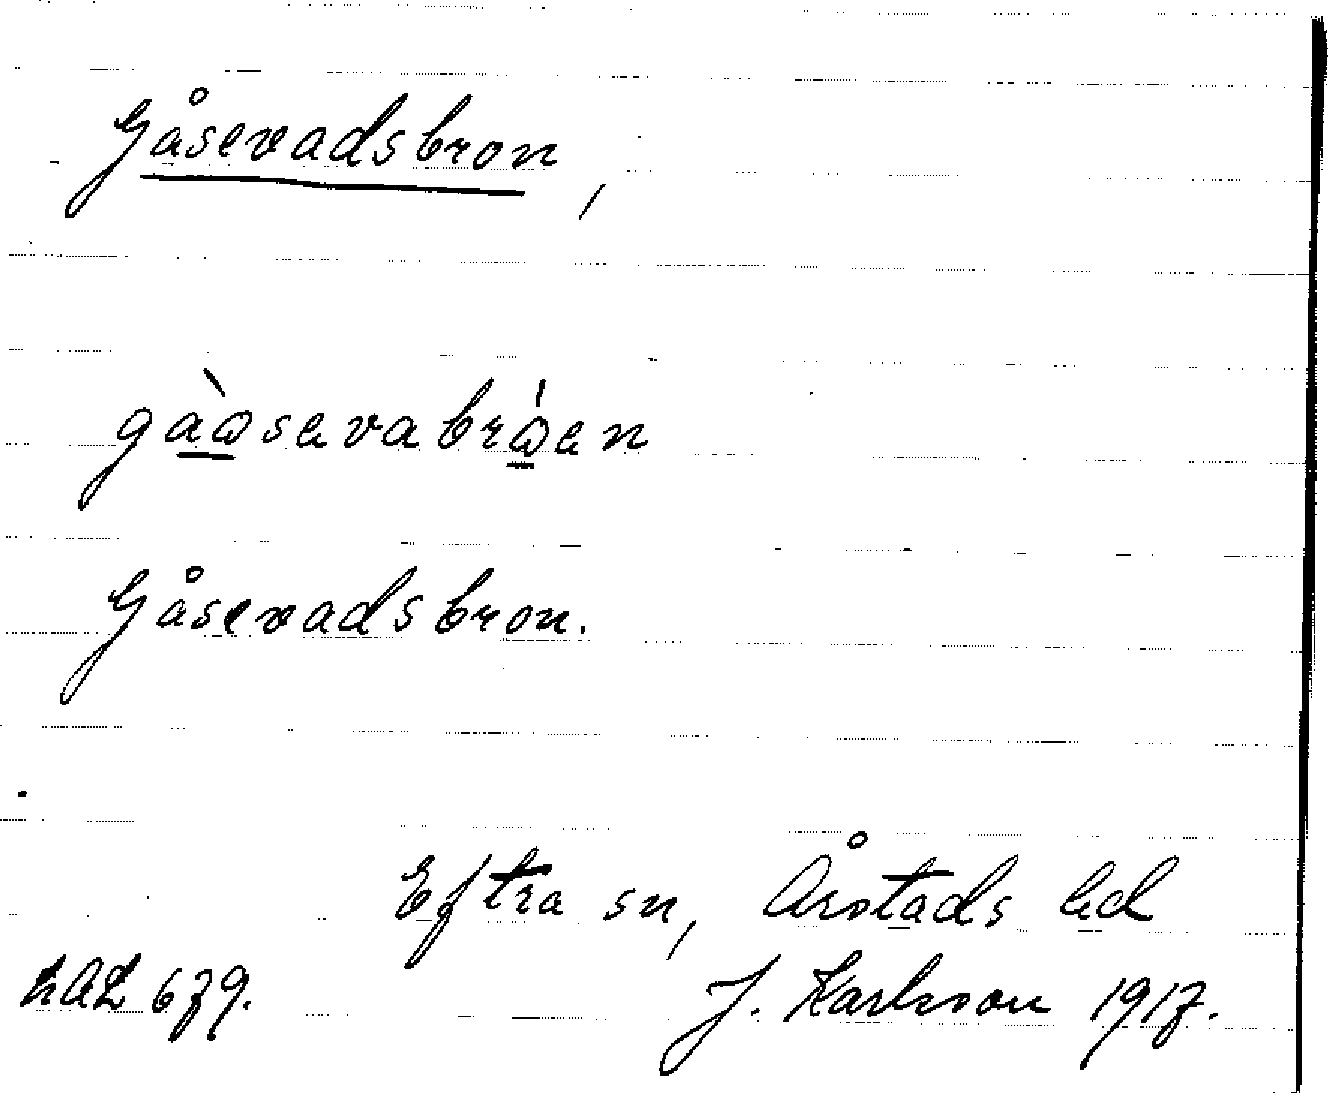 Gåsevadsbron,
gàꝏsevabrꝏ́en
Gåsevadsbron.
Eftra sn, Årstads hd
LAL 679. J. Karlsson 1917.